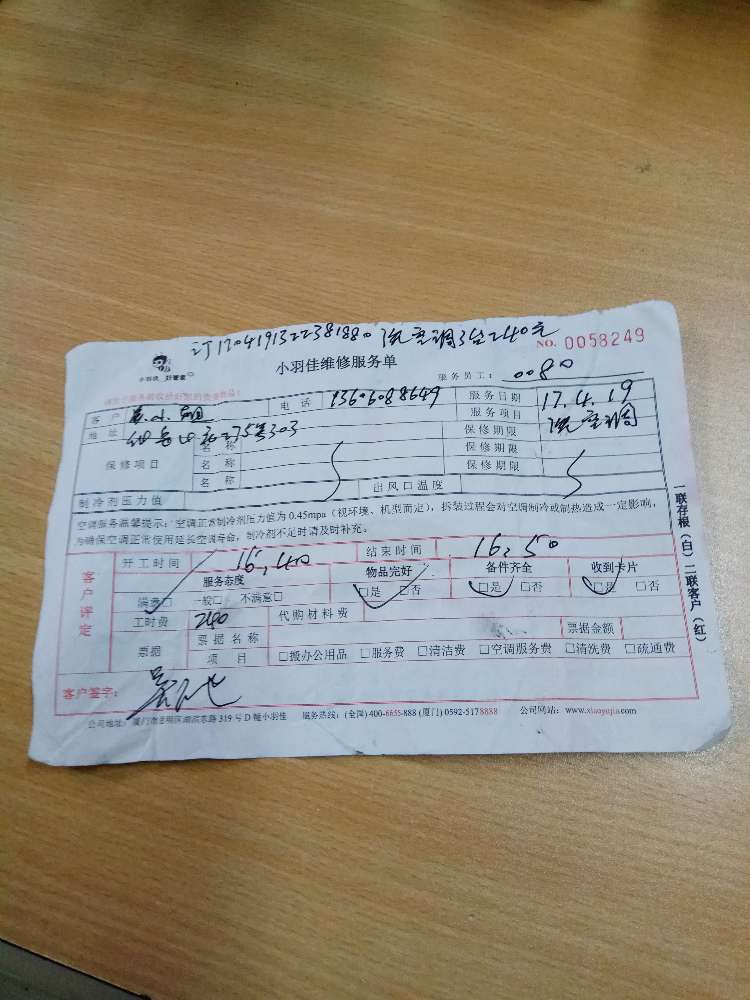 订1704191322381880 洗空调3台240元
小羽佳 好管家
小羽佳维修服务单
NO. 0058249
服务员工: 0080
客户 小姐 电话 13606088649 服务日期 17.4.19
地址 303 服务项目 洗空调
保修项目 名称 保修期限
名称 保修期限
名称 保修期限
制冷剂压力值 出风口温度
空调服务温馨提示:空调正常制冷剂压力值为0.45mpa(视环境、机型而定),拆装过程会对空调制冷或制热造成一定影响,
为确保空调正常使用延长空调寿命,制冷剂不足时请及时补充。
客户评定
开工时间 16,40 结束时间 16,50
服务态度 物品完好 备件齐全 收到卡片
满意□ 一般□ 不满意□ □是 □否 □是 □否 □是 □否
工时费 240 代购材料费
票据 票据名称 票据金额
项目 □搬办公用品 □服务费 □清洁费 □空调服务费 □清洗费 □疏通费
客户签字:
公司地址:厦门市思明区湖滨东路319号D幢小羽佳 服务热线:(全国)400-6655-888 (厦门) 0592-5178888 公司网站:www.xiaoyujia.com
一联存根(白)二联客户(红)